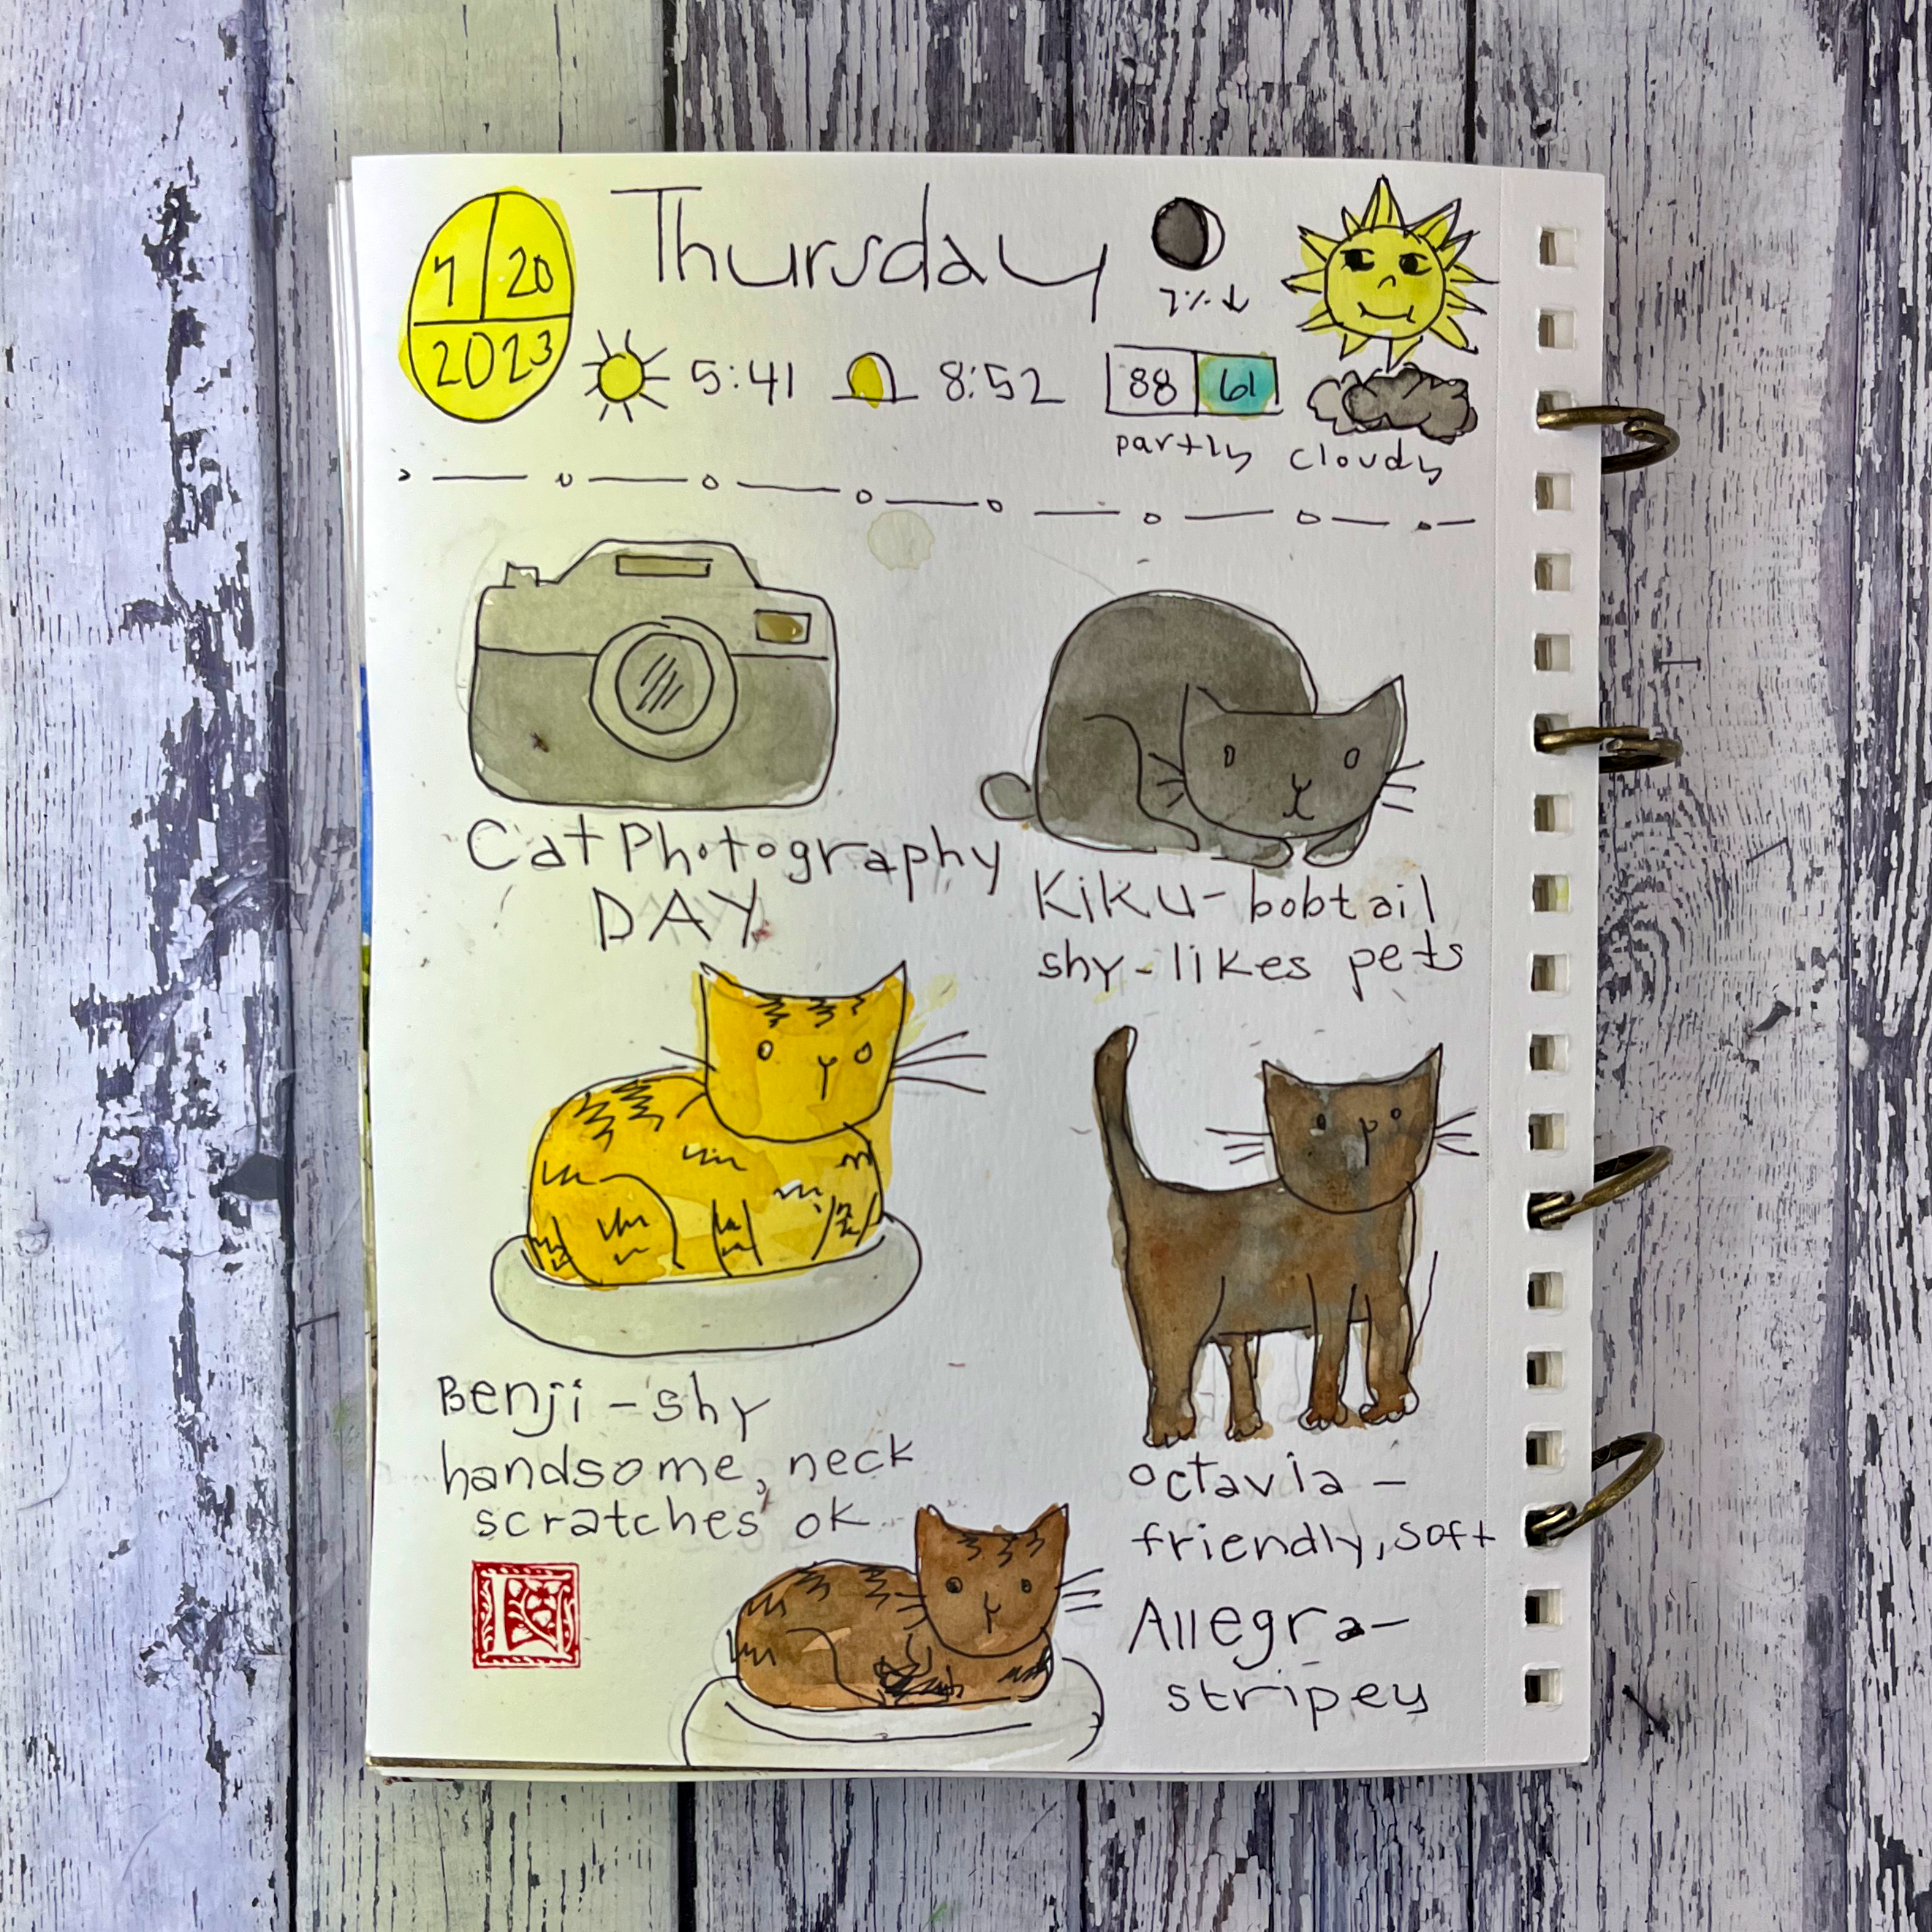 7 20
2023
Thursday
7% ↓
5:41 8:52 88 61
partly cloudy
Cat Photography
DAY
Kiku - bobtail
shy - likes pets
Benji - shy
handsome, neck
scratches ok
octavia -
friendly, soft
Allegra -
stripey